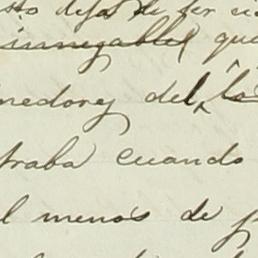 sto deja de ser ci
innegable que
nedores del la
traba cuando
l menos de p